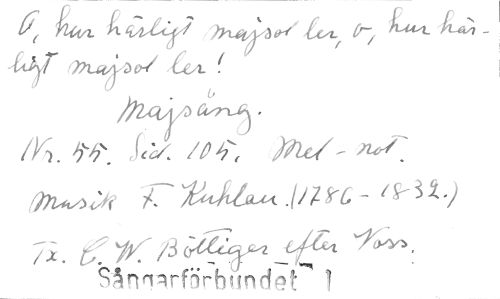 O, hur härligt majsol ler, o, hur här-
ligt majsol ler!
Majsång.
Nr. 55. Sid. 105. Mel-not.
Musik F. Kuhlau. (1786-1832.)
Tx. C. W. Böttiger efter Voss.
Sångarförbundet 1